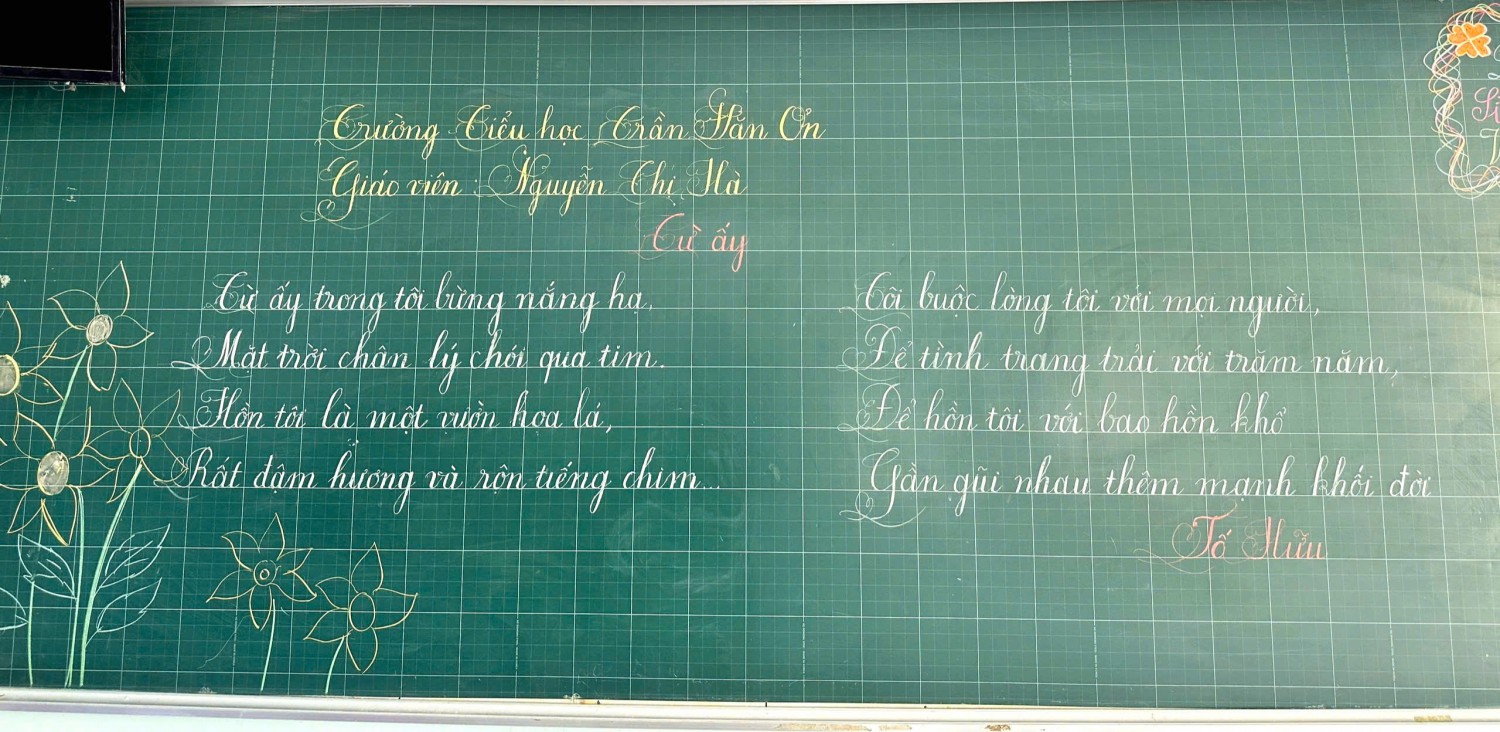 Trường Tiểu học Trần Hăn Ơn
Giáo viên : Nguyễn Thị Hà
Từ ấy
Từ ấy trong tôi bừng nắng hạ,
Mặt trời chân lý chói qua tim.
Hồn tôi là một vườn hoa lá,
Rất đậm hương và rộn tiếng chim...
Tôi buộc lòng tôi với mọi người,
Để tình trang trải với trăm năm,
Để hồn tôi với bao hồn khổ
Gần gũi nhau thêm mạnh khối đời
Tố Hữu